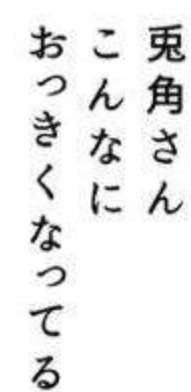 兎角さん
こんなに
おっきくなってる